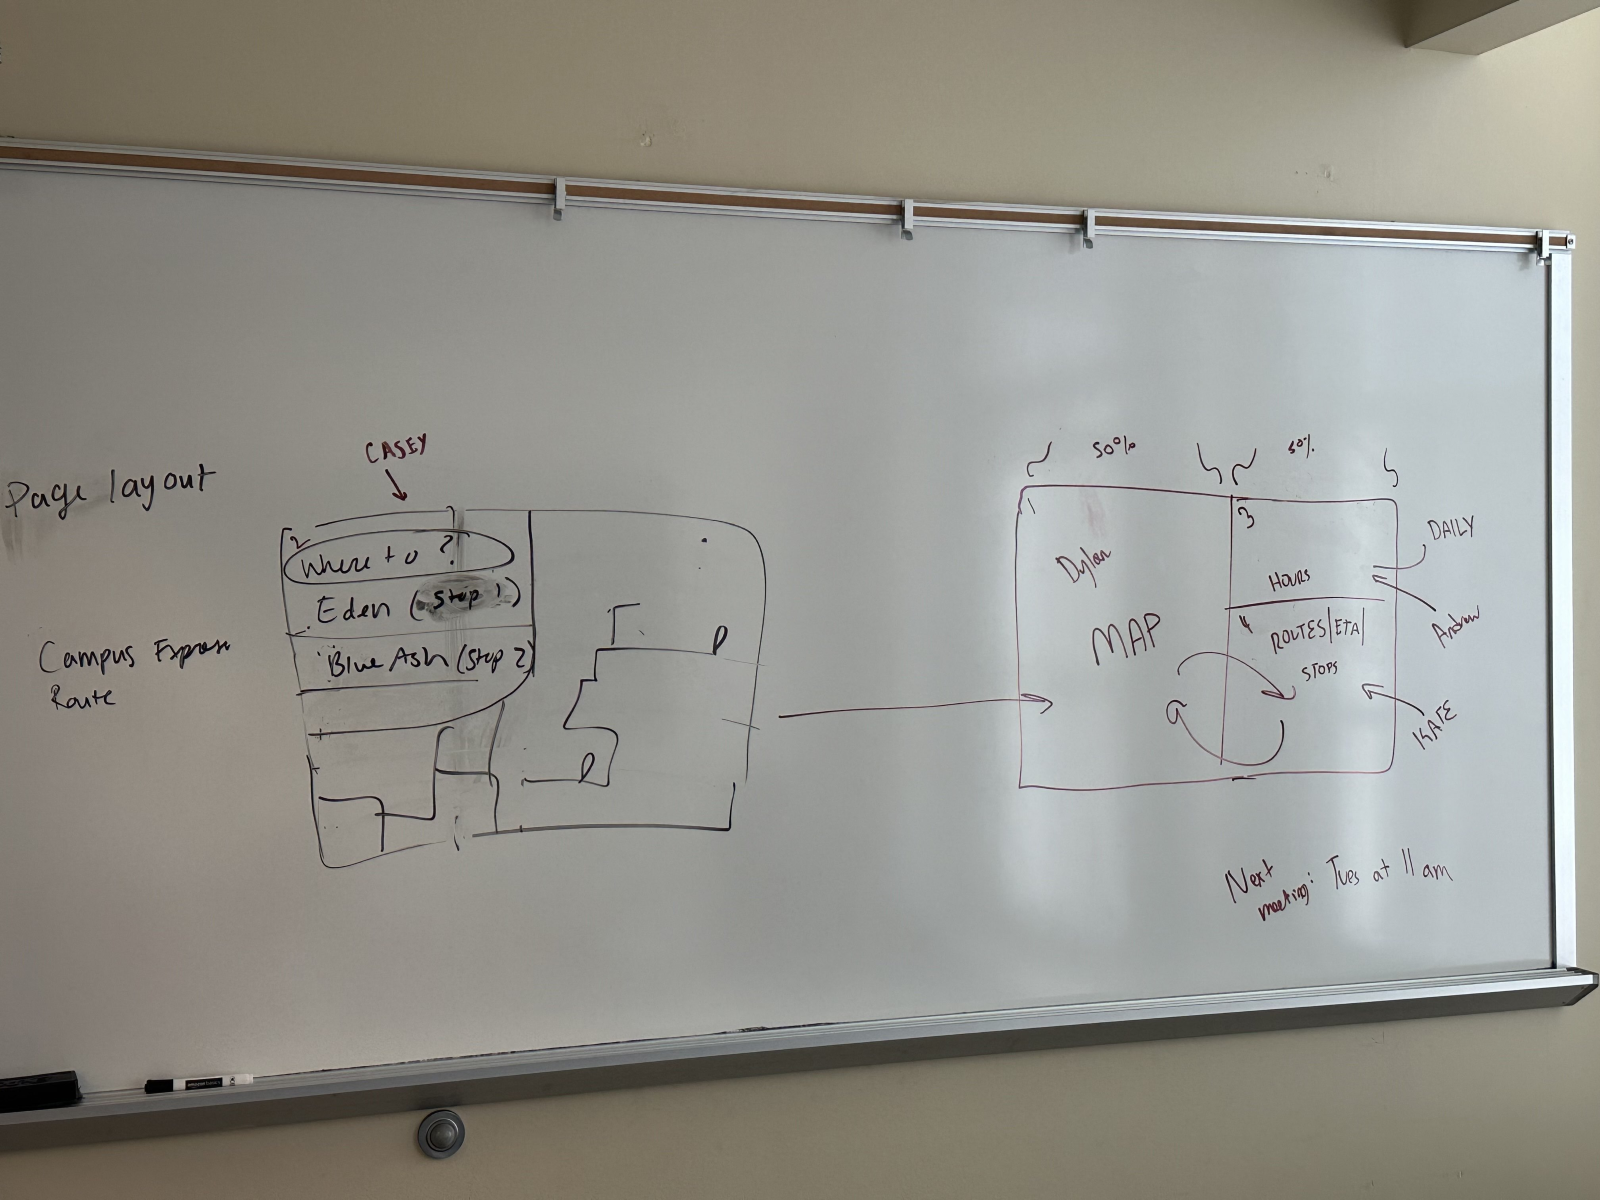 Page layout
Campus Express
Route
CASEY
2
Where to?
Eden (Stop 1)
Blue Ash (Stop 2)
50%
50%
1
Dylan
MAP
3
HOURS
DAILY
Andrew
4
ROUTES/ETA/
STOPS
KATE
Next
meeting: Tues at 11 am